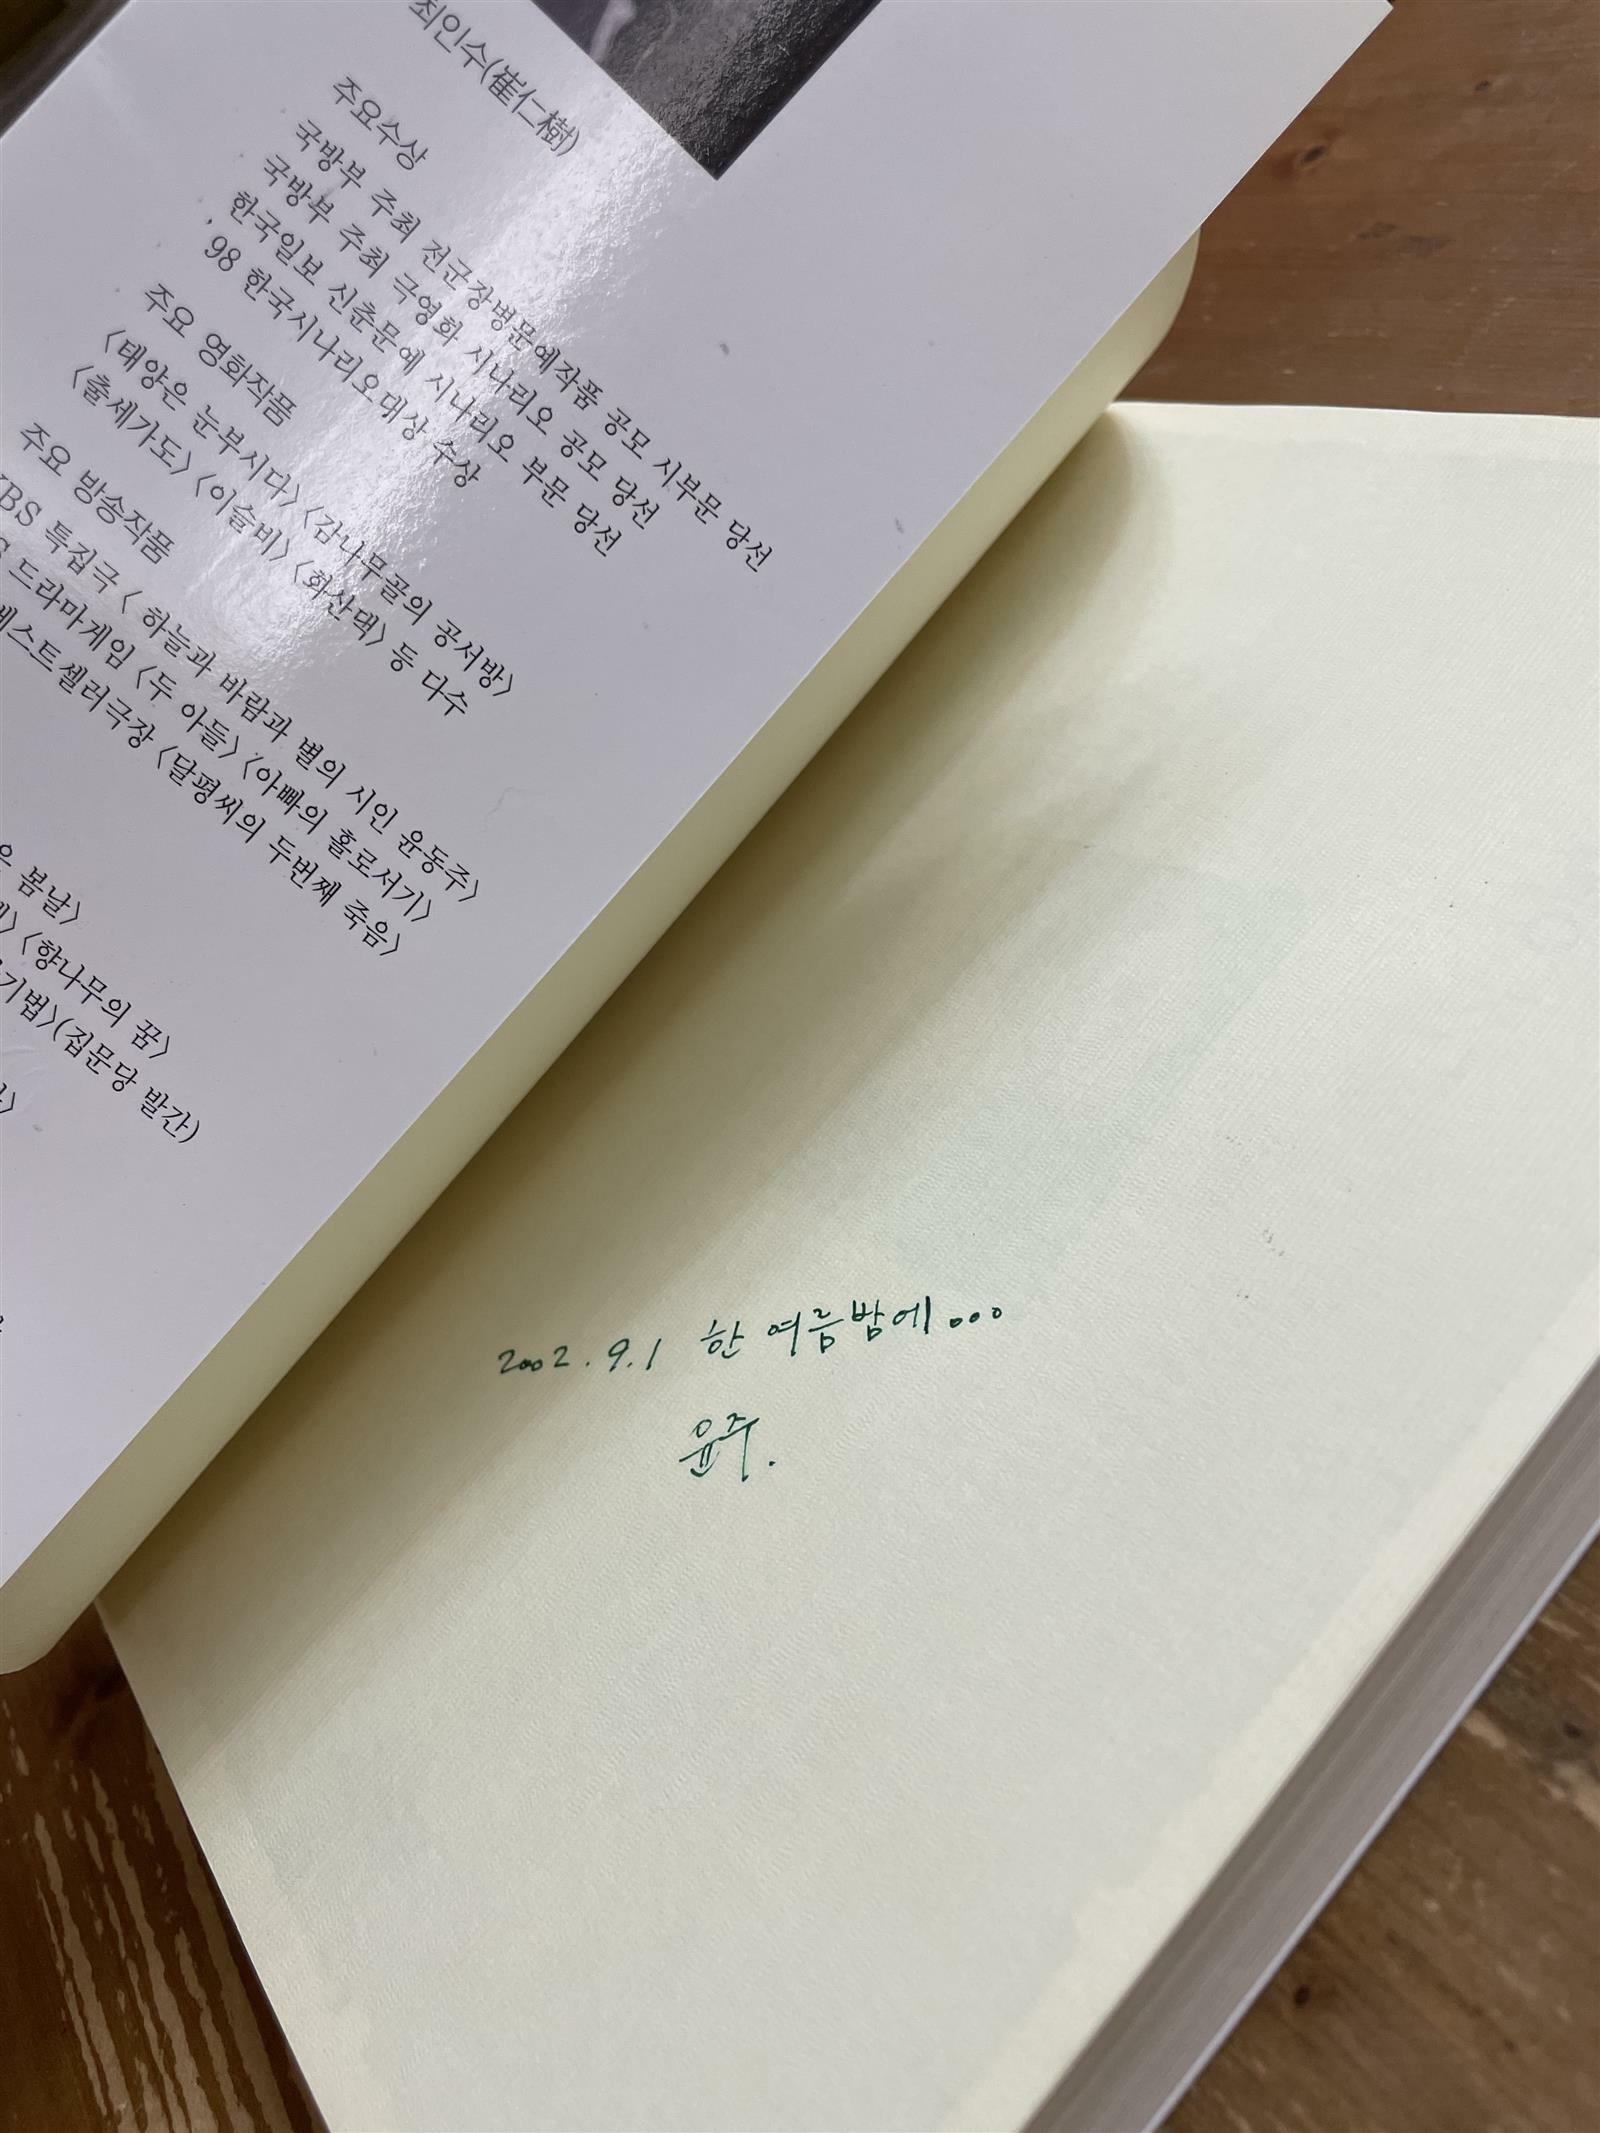 최인수(崔仁樹)
주요수상
국방부 주최 전군장병문예작품 공모 시부문 당선
국방부 주최 극영화 시나리오 공모 당선
한국일보 신춘문예 시나리오 부문 당선
'98 한국시나리오대상 수상
주요 영화작품
〈태양은 눈부시다〉〈감나무골의 공서방〉
〈출세가도〉〈이슬비〉〈화산댁〉 등 다수
주요 방송작품
KBS 특집극 〈하늘과 바람과 별의 시인 윤동주〉
드라마게임 〈두 아들〉〈아빠의 홀로서기〉
베스트셀러극장 〈달평씨의 두번째 죽음〉
봄날〉
〈향나무의 꿈〉
기법〉(집문당 발간)
2002.9.1 한 여름밤에...
윤주.